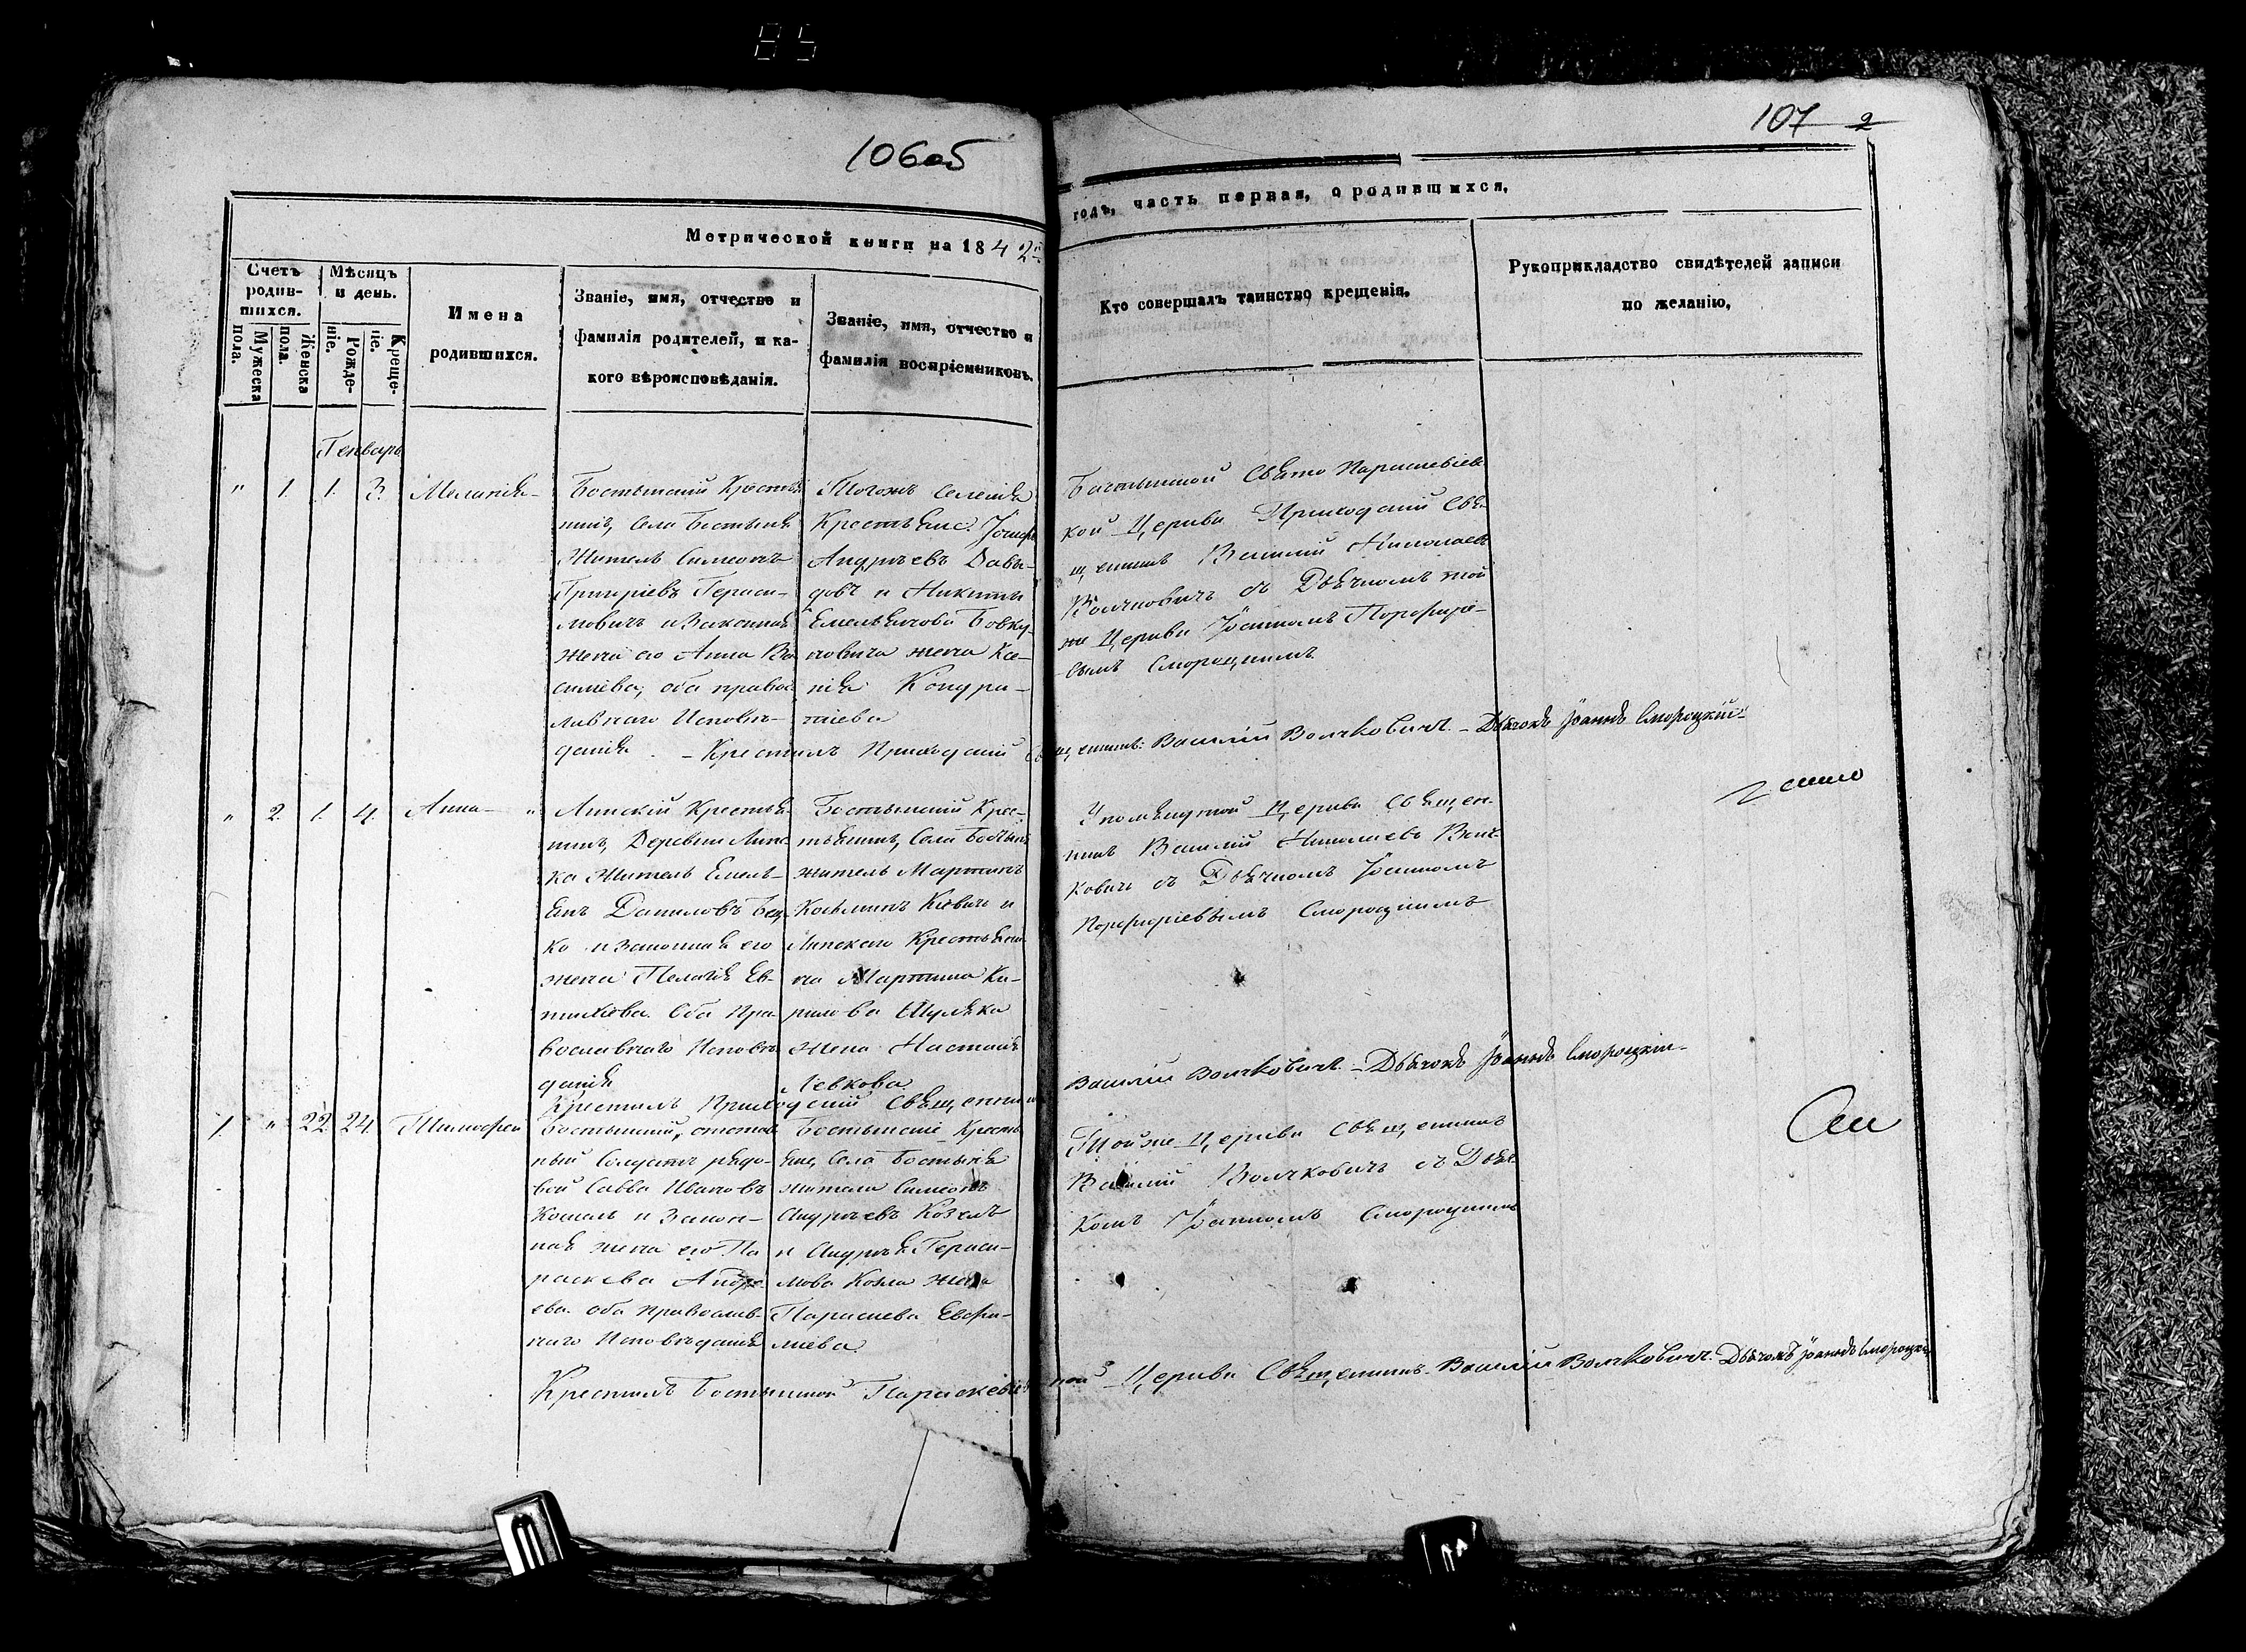 85
106об
107 2
Метрической книги на 1842й
годъ, часть первая, о родившихся,
Счетъ родившихся.
Мужеска пола.
Женска пола.
Мѣсяцъ и день.
Рожденіе.
Крещеніе.
Имена
родившихся.
Званіе, имя, отчество и
фамилія родителей, и ка-
кого вѣроисповѣданія.
Званіе, имя, отчество и
фамилія воспріемниковъ.
Кто совершалъ таинство крещенія.
Рукоприкладство свидѣтелей записи
по желанію.
Генварь
" 1. 1. 3. Меланія
Бостынскій Крестья
нинъ, Села Бостыня
Житель Симеонъ
Григоріевъ Гераси-
мовичъ и Законная
жена его Анна Ва
силіева, оба право
лавнаго Исповѣ-
данія
Тогожъ Селенія
Крестьянс. Іосифъ
Андрѣевъ Давы-
довъ и Никиты
Емельянова Бовку-
новича жена Ксе-
нія Кондра-
тіева
Бостынской Свято Параскевіев
кой Церкви Приходскій Свя
щенникъ Василій Николаевъ
Волчковичъ съ Дьячкомъ той
же Церкви Іоанномъ Порфирі-
евымъ Смороцкимъ
Крестилъ Приходскій Священникъ: Василій Волчковичъ. Дьячокъ Іоаннъ Смороцкій
" 2. 1. 4. Анна "
Липскій Крестья
нинъ, Деревни Липс
ка Житель Емель-
янъ Даниловъ
ко и Законная его
жена Пелагія Ев-
тихіева. Оба Пра
вославнаго Исповѣ
данія
Бостынскій Крес-
тьянинъ, Села Бостыня
житель Мартинъ
Косьминъ Кіевичъ и
Липскаго Крестьяни
на Мартина Ки-
рилова Шуляка
Жена Настасія
Левкова
Упомянутой Церкви Священ
никъ Василій Николаевъ Волч
ковичъ съ Дьячкомъ Іоанномъ
Порфиріевымъ Смороцкимъ
Крестилъ Приходскій Священникъ
Василій Волчковичъ. Дьячокъ Іоаннъ Смороцкій
1. " 22 24. Тимофей
Бостынский, отстав
ный Солдатъ рядо-
вой Савва Ивановъ
Кошель и Закон-
ная жена его Па
раскева Андре
ева. оба православ-
наго Исповѣданія
Бостынскіе Кресть
яне, Села Бостыня
жители Симеонъ
Андрѣевъ Козелъ
и Андрѣя Гераси-
мова Козла жена
Параскева Евфи-
міева.
Той же Церкви Священникъ
Василій Волчковичъ съ Дьяч
комъ Іоанномъ Смороцкимъ
Крестилъ Бостынской Параскевіевской Церкви Священникъ Василій Волчковичъ. Дьячокъ Іоаннъ Смороцкій